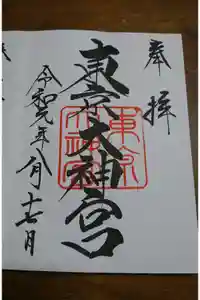 奉拝
東京大神宮
東京大神宮
令和元年八月十七日